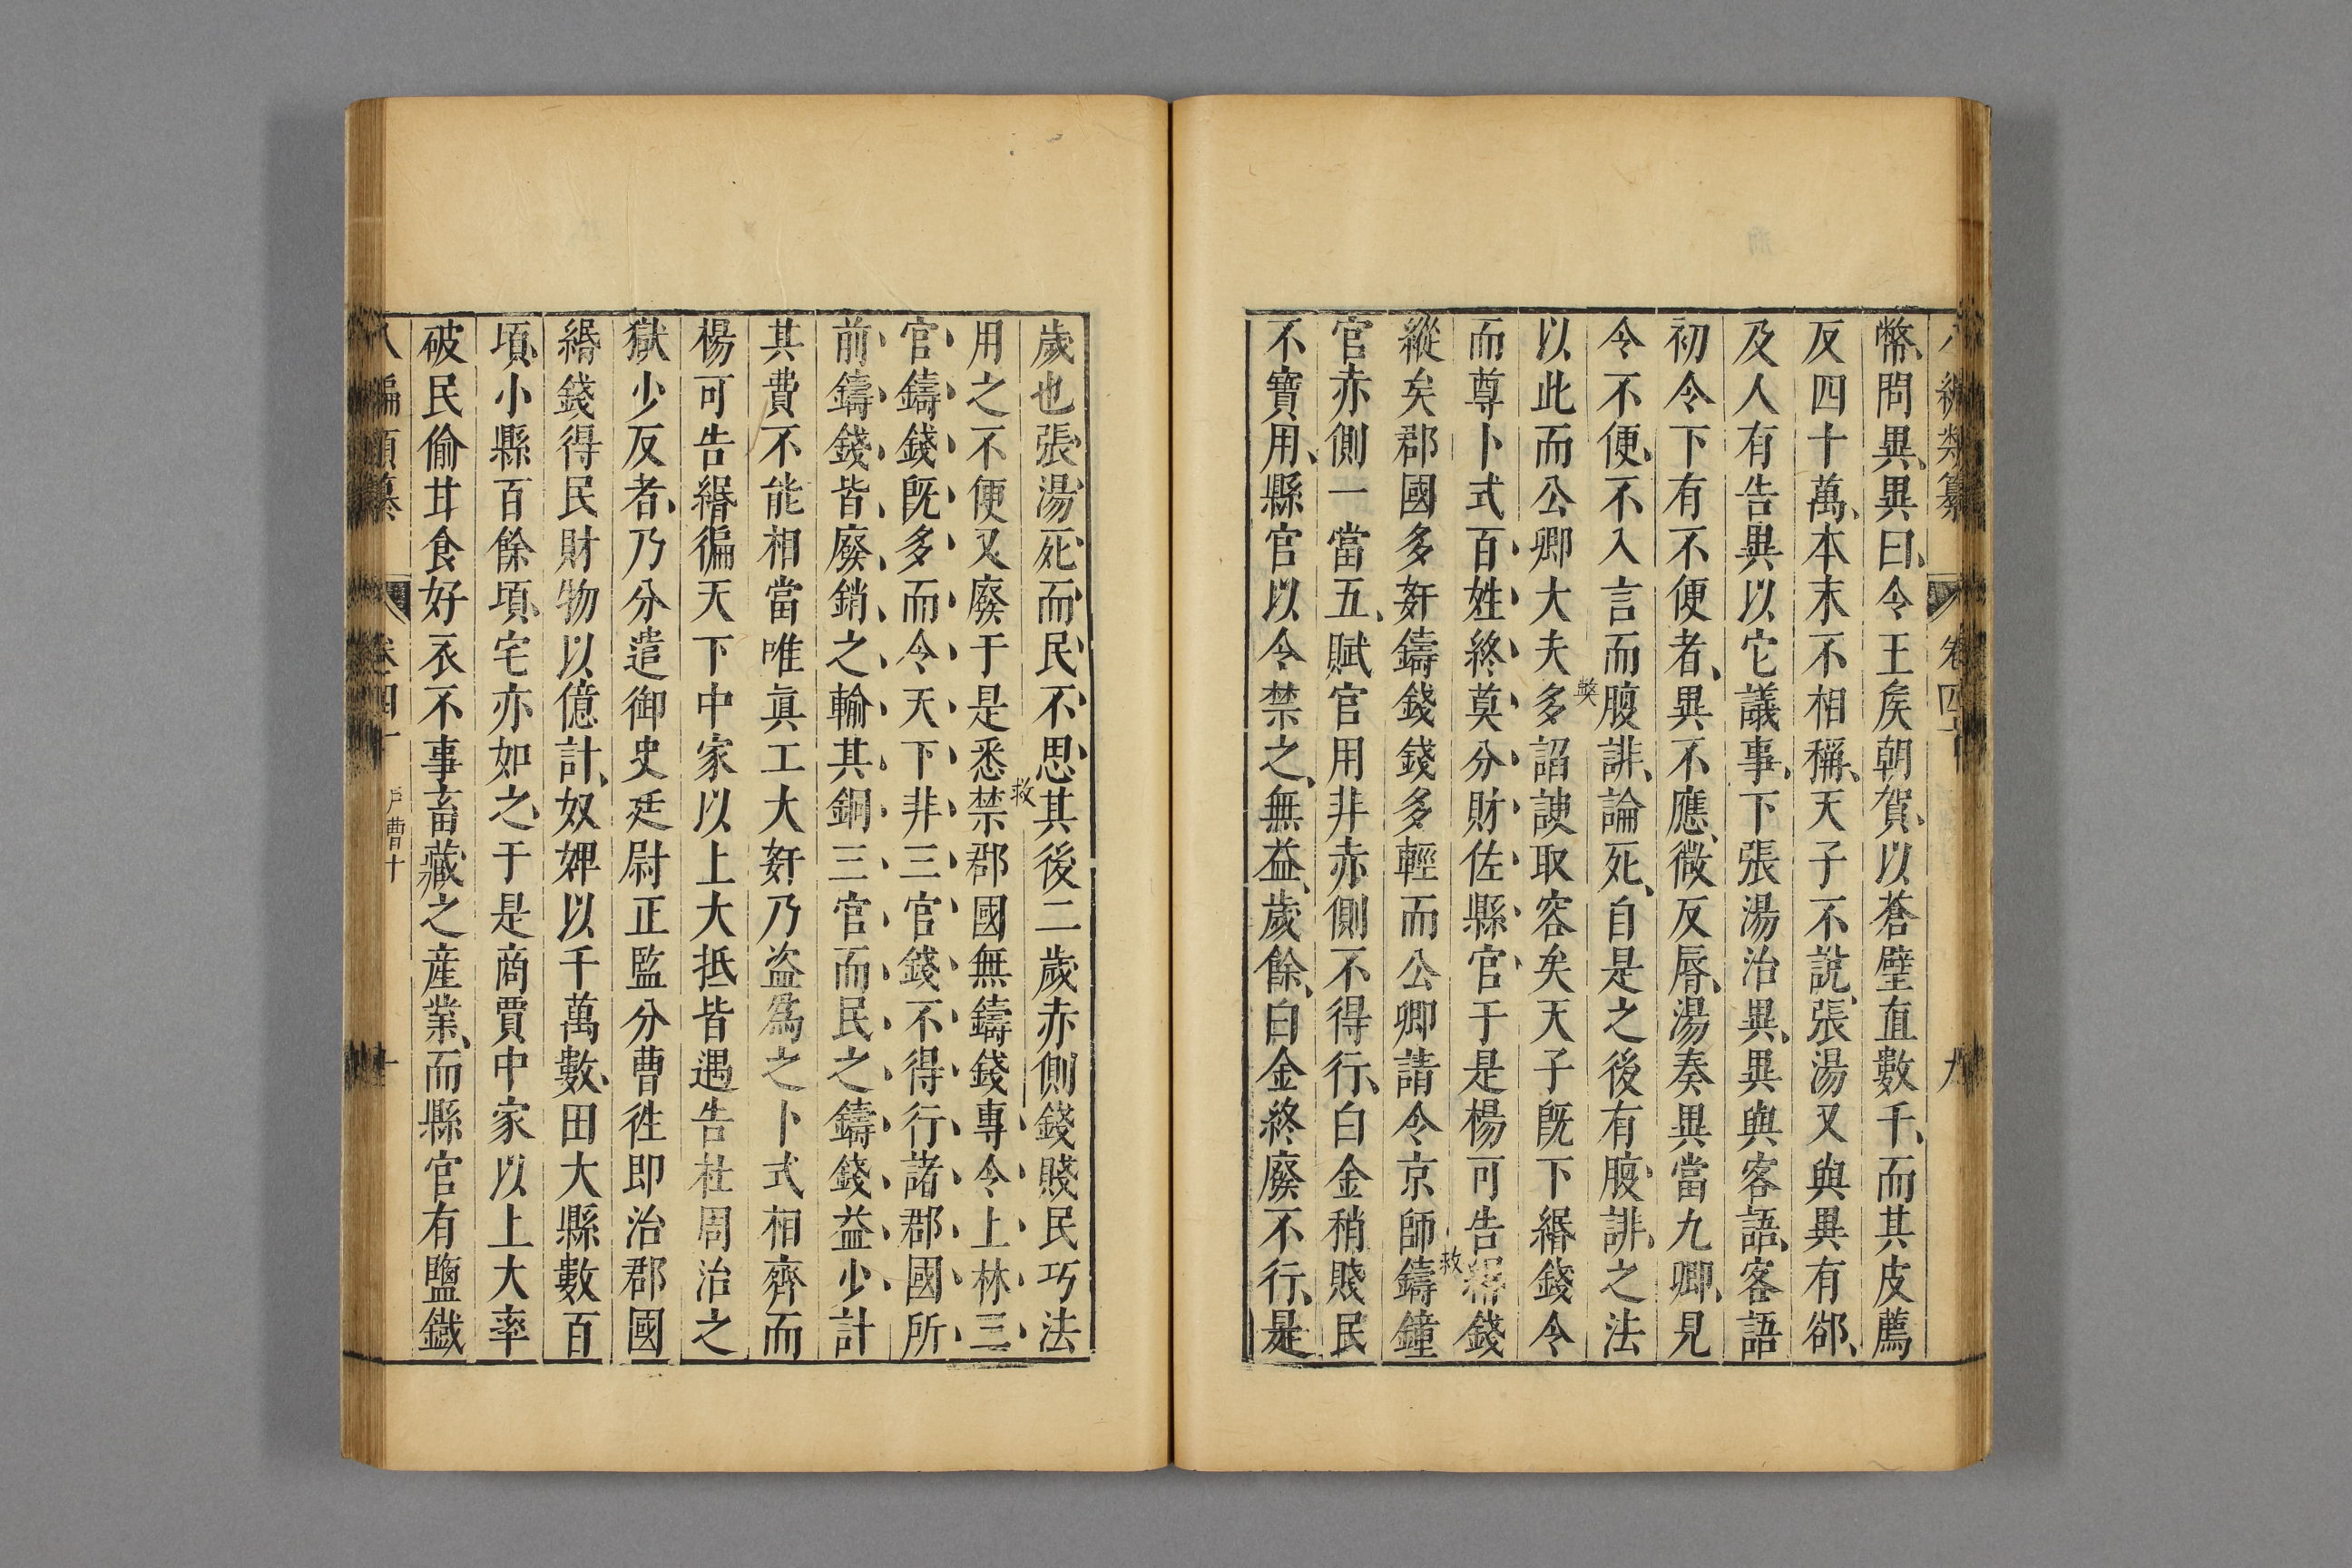 八編類纂 卷四十 九
幣、問異、異曰、令王矦朝賀、以蒼璧直數千、而其皮薦
反四十萬、本末不相稱、天子不說、張湯又與異有郤、
及人有告異以它議事、下張湯治異、異與客語、客語
初令下有不便者、異不應、微反脣、湯奏異當九卿、見
令不便、不入言而腹誹、論死、自是之後有腹誹之法
以此而公卿大夫多諂諛取容矣天子旣下緡錢令
弊
而尊卜式百姓終莫分財佐縣官于是楊可告緡錢
縱矣郡國多姧鑄錢錢多輕而公卿請令京師鑄鐘
救
官赤側一當五、賦官用非赤側不得行、白金稍賤民
不寶用、縣官以令禁之、無益、歲餘、白金終廢不行、是
歲也張湯死而民不思其後二歲赤側錢賤民巧法
用之不便又廢于是悉禁郡國無鑄錢專令上林三
救
官鑄錢旣多而令天下非三官錢不得行諸郡國所
前鑄錢皆廢銷之輸其銅三官而民之鑄錢益少計
其費不能相當唯眞工大姧乃盗爲之卜式相齊而
楊可告緡徧天下中家以上大抵皆遇告杜周治之
獄少反者、乃分遣御史廷尉正監分曹徃即治郡國
緡錢得民財物以億計、奴婢以千萬數、田大縣數百
頃、小縣百餘頃、宅亦如之、于是商賈中家以上大率
破民偷甘食好衣不事畜藏之産業、而縣官有鹽鐡
八編類纂 卷四十 戶曹十 十